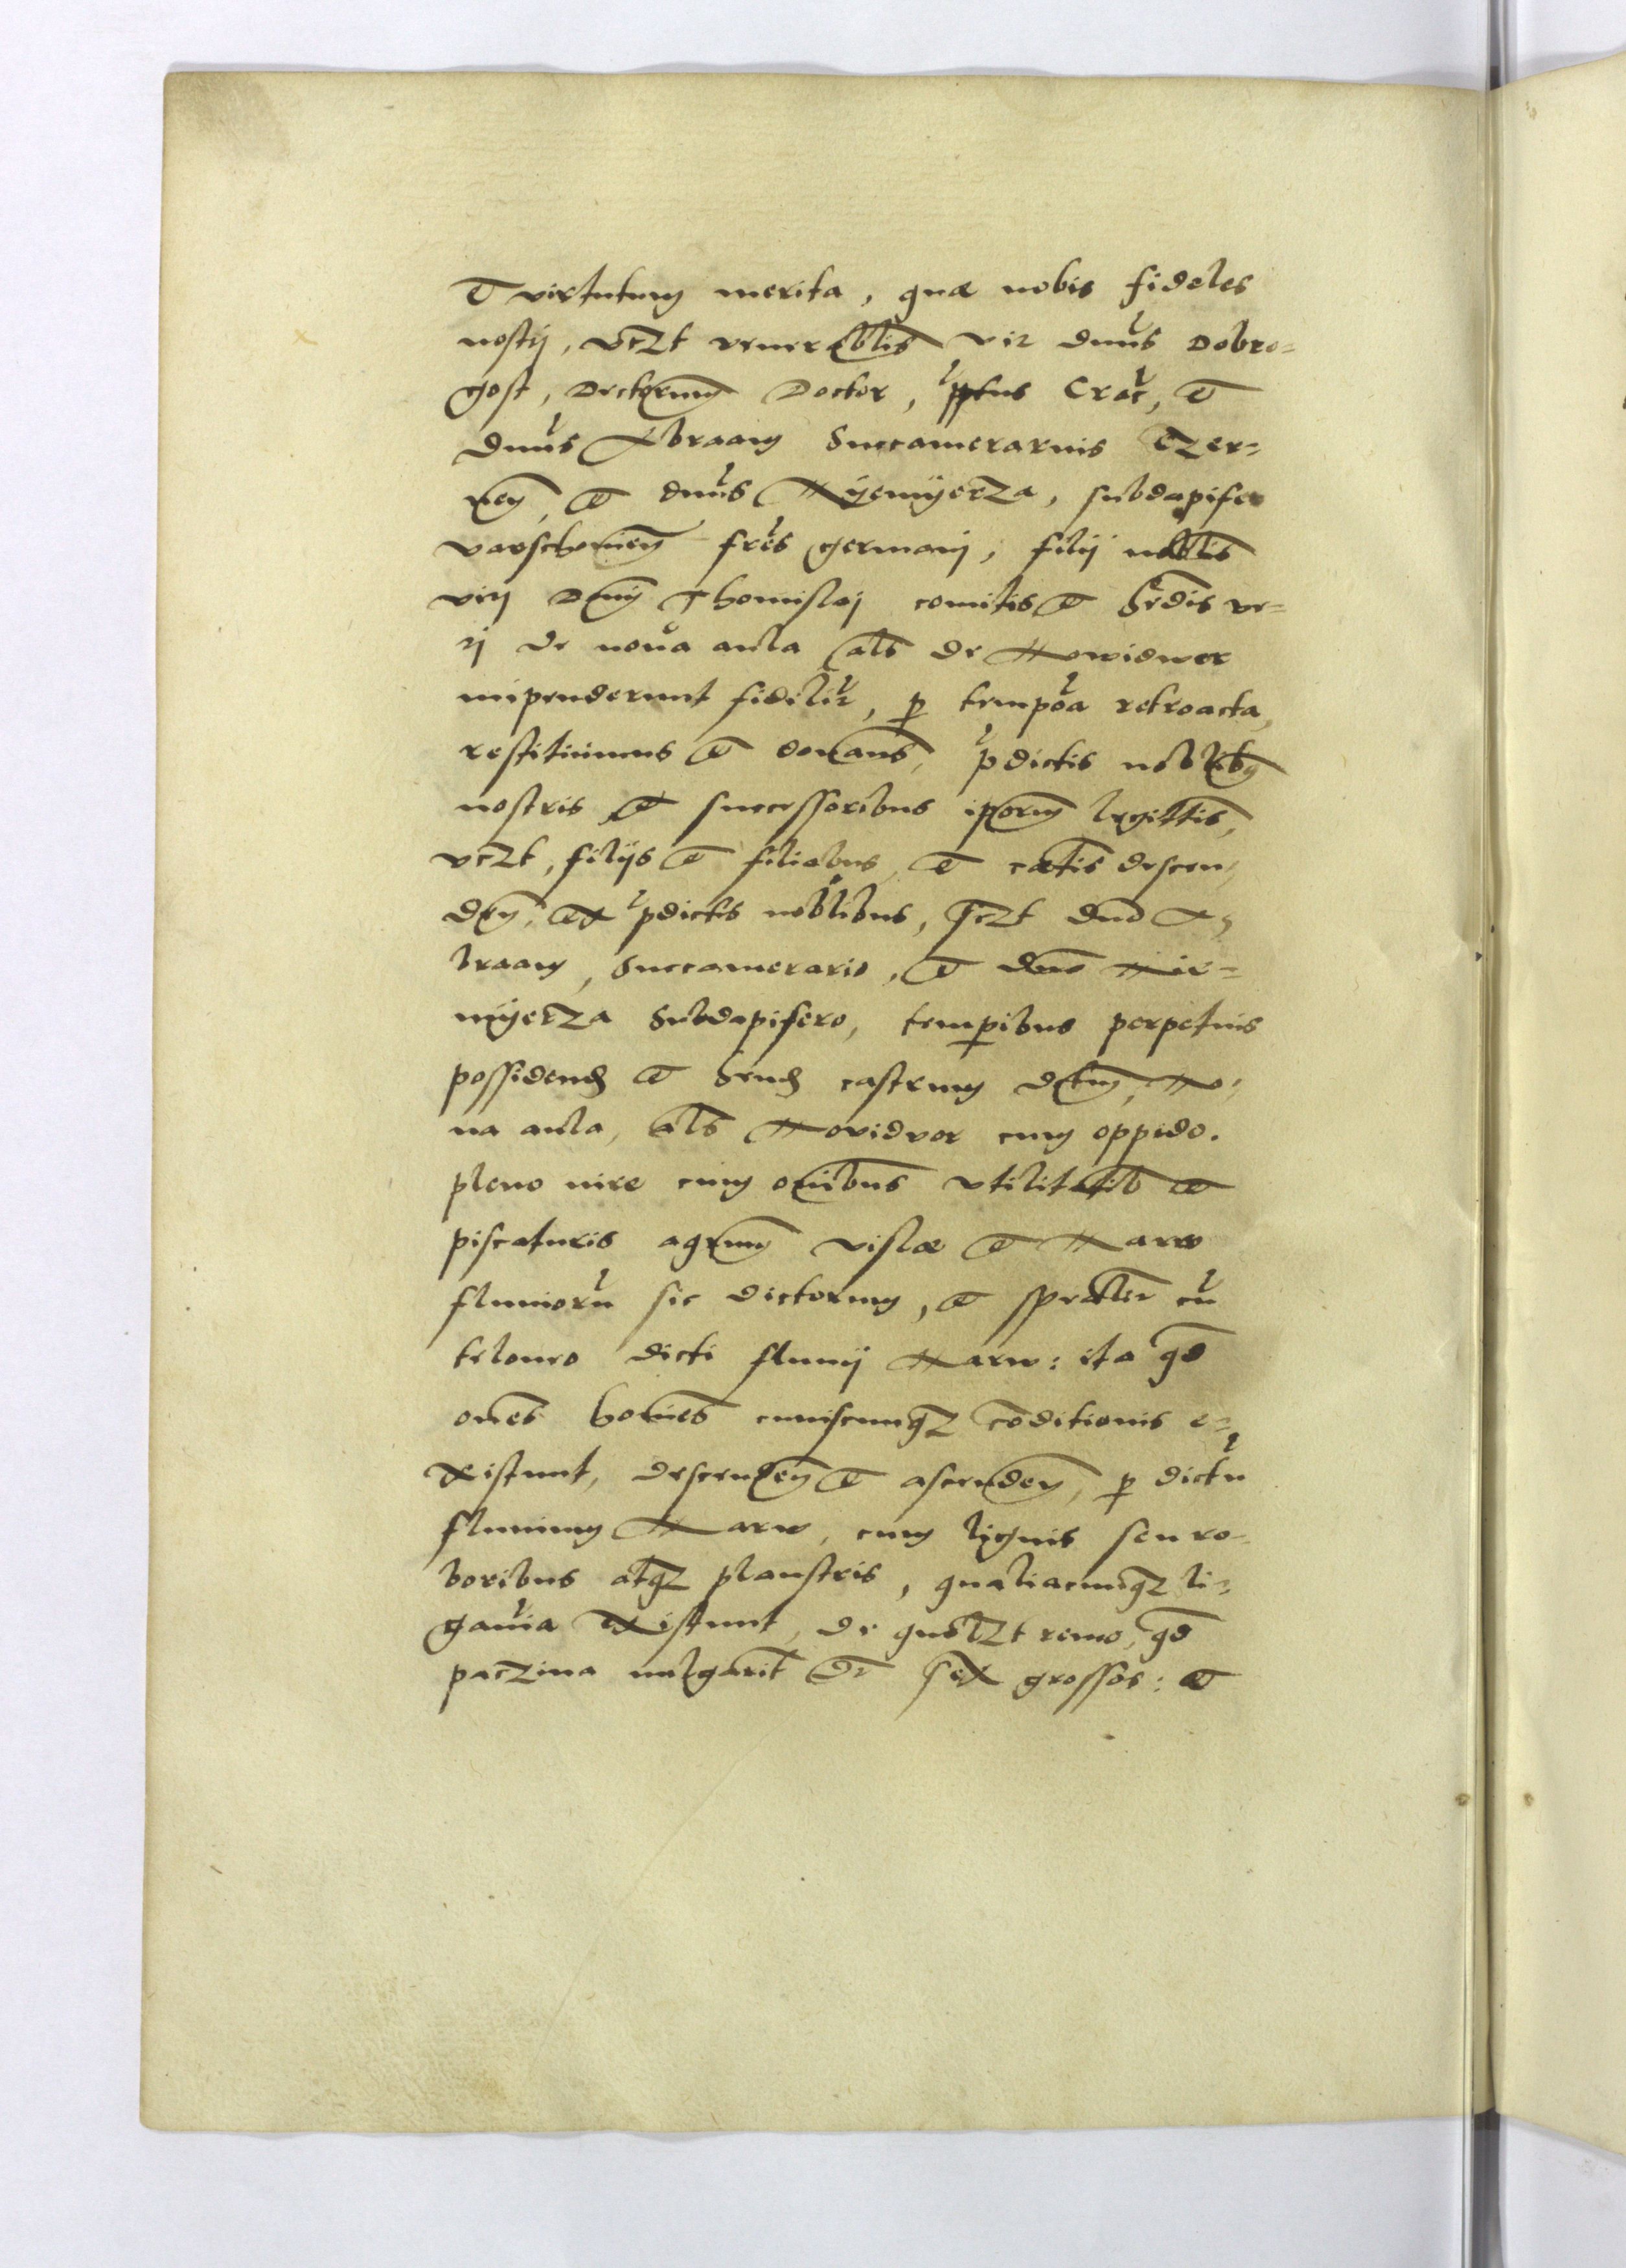 et virtutum merita, quae nobis fideles
nostri, vczt venerablis vir dnus Dobro=
gost, Dectorum Doctor, pptus Crac, et
dnus Abraam Succamerarius Czer=
nen, et dnus Nyemyerza, subdapifer
varschouien fres germani, filij noblis
viri Dni Thomislaj comitis et hrdis ve=
ri de noua aula als de Nowidwor
impenderunt fidilir, p tempora retroacta,
restituimus et donams, pdictis noblibus
nostris et successoribus ipsorum legittis,
vczt, filijs et filiabus, et caetis descen,
den, ex pdictis noblibus, sczt dno A,
braam, Succamerario, et dno Nie=
myerza Subdapifero, tempibus perpetuis
possidend et hend castrum dctum, No,
ua aula, als Novidvor cum oppido.
pleno iure cum omibus vtilitatib et
piscaturis aqrum vislae et Narw
fluuioru sic dictorum, et spraliter cu
teloneo dicti fluuij Narw: ita qd
omes homies cuiuscumqz coditionis e=
xistunt, descenden et ascenden, p dictu
fluuium Narw, cum lignis seu ro=
boribus atqz plaustris, qualiacumqz li=
gamia existunt, de quolzt remo, qd
paczina uulgarit dr sex grossos: et